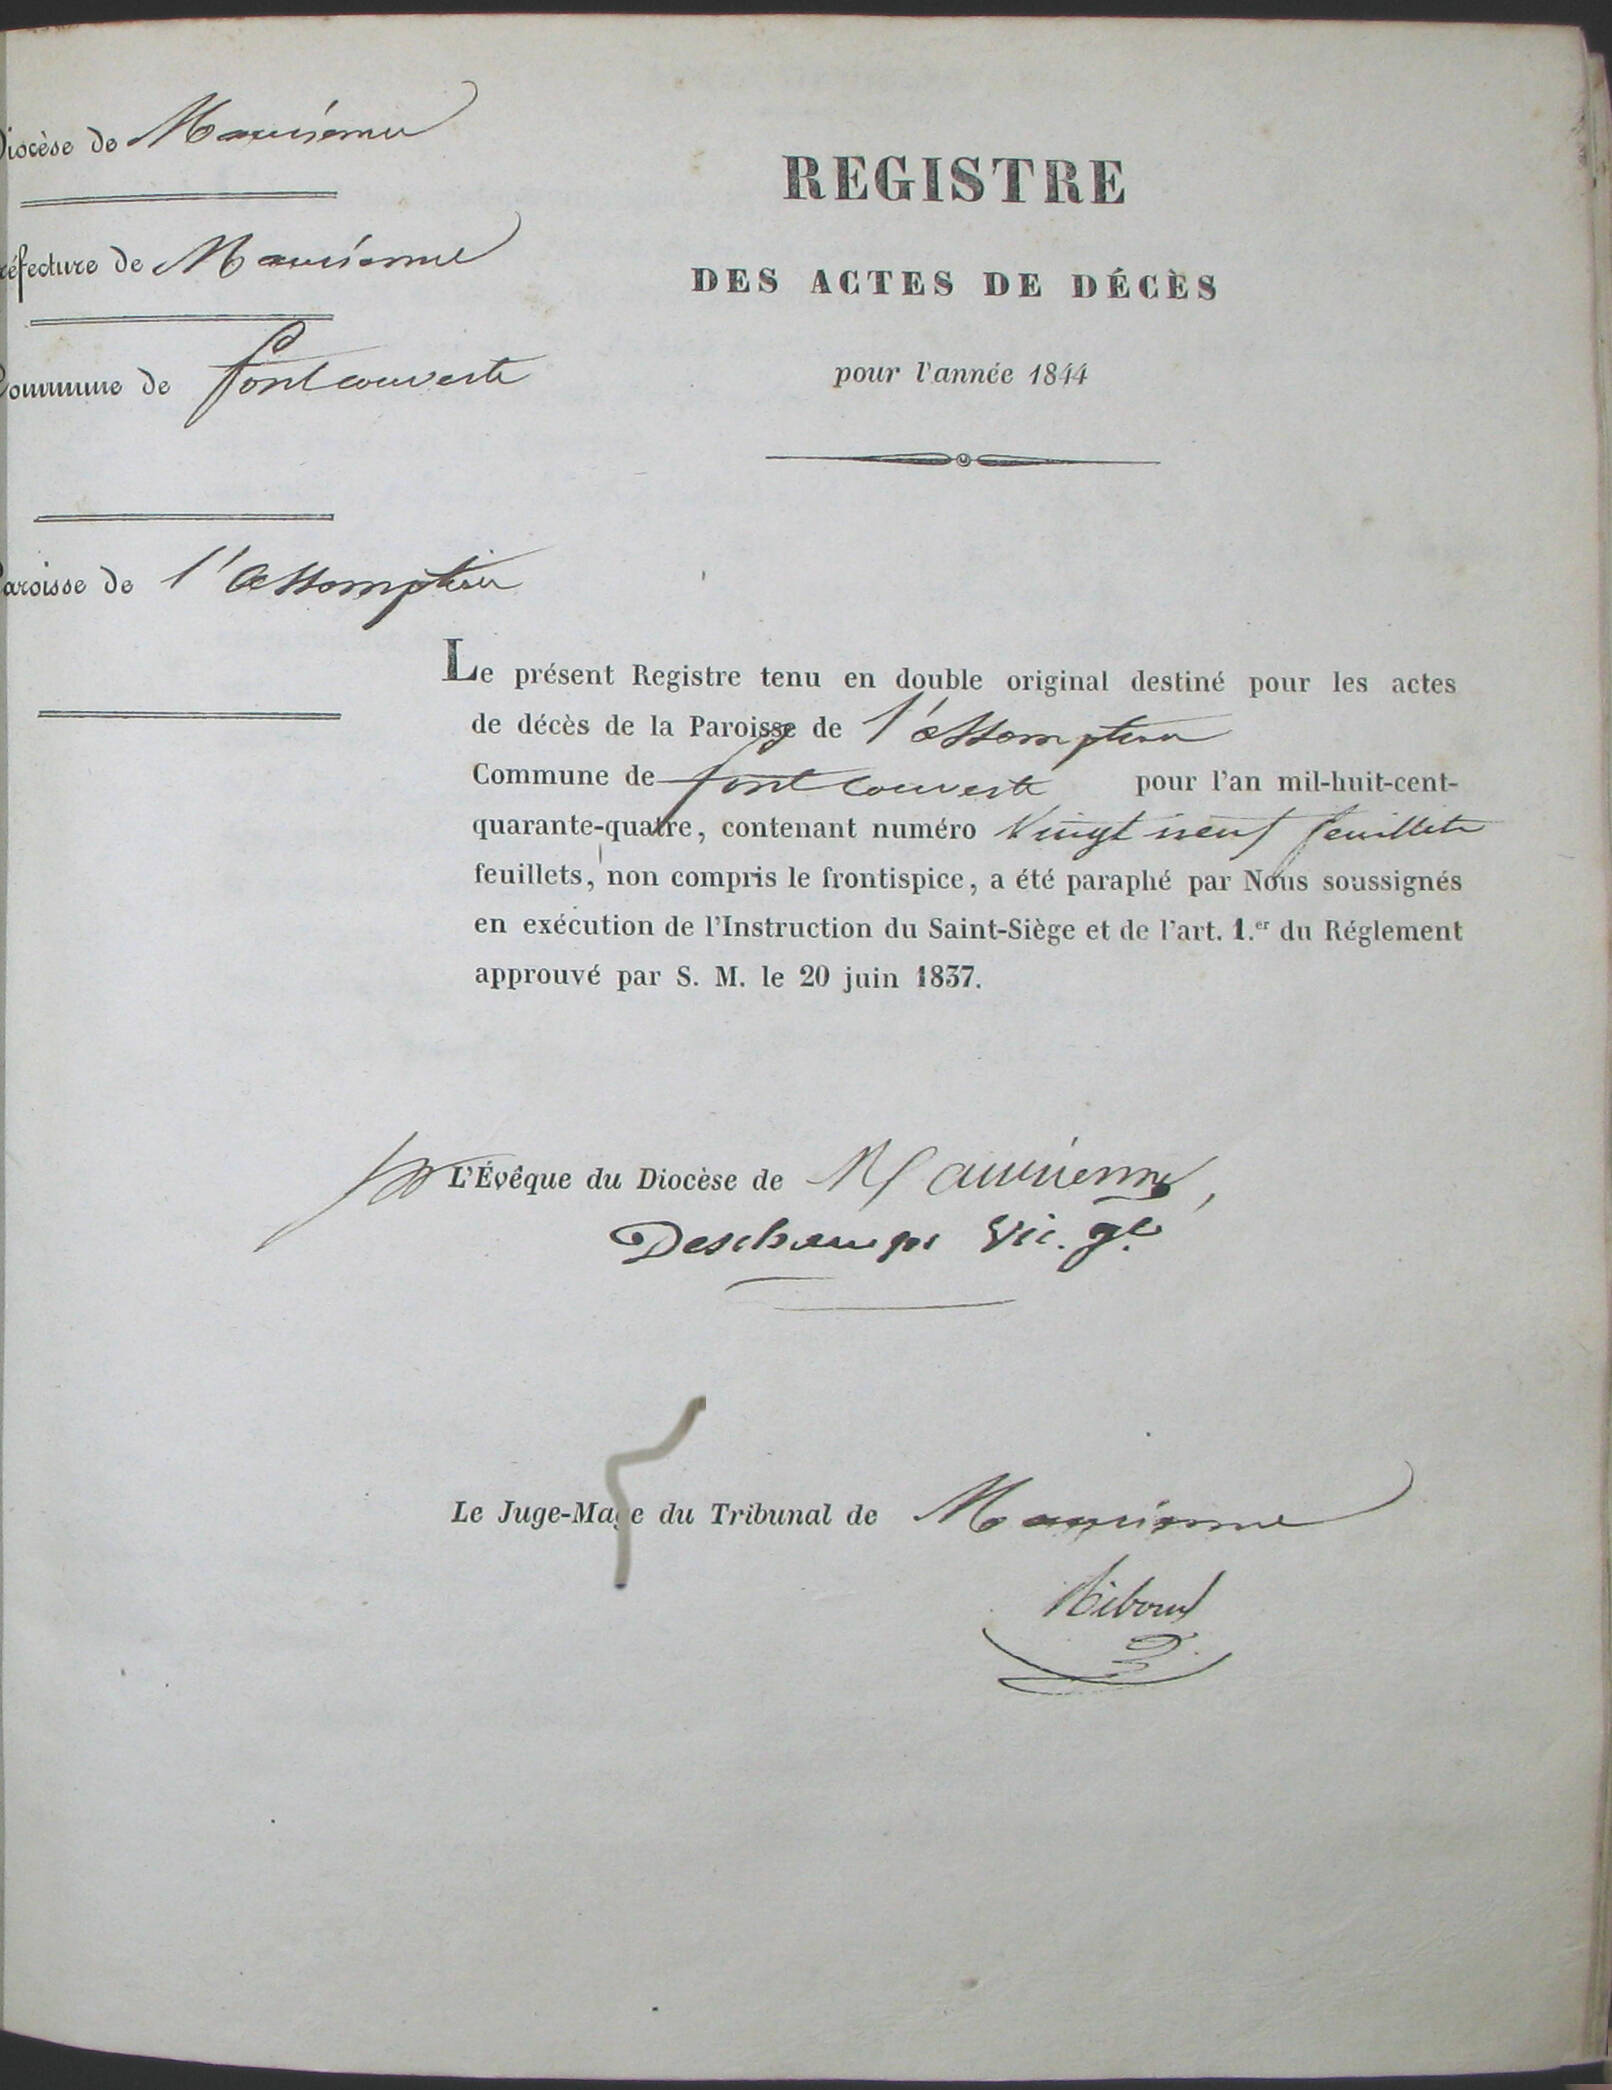 Diocèse de Maurienne
réfecture de Maurienne
Commune de fontcouverte
Paroisse de l'assomption
REGISTRE
DES ACTES DE DÉCÈS
pour l'année 1844
Le présent Registre tenu en double original destiné pour les actes
de décès de la Paroisse de l'assomption
Commune de fontcouverte pour l'an mil-huit-cent-
quarante-quatre, contenant numéro vingt neuf feuillets
feuillets, non compris le frontispice, a été paraphé par Nous soussignés
en exécution de l'Instruction du Saint-Siège et de l'art. 1.er du Réglement
approuvé par S. M. le 20 juin 1837.
L'Évêque du Diocèse de Maurienne,
Deschamps Vic. gl
Le Juge-Mage du Tribunal de Maurienne